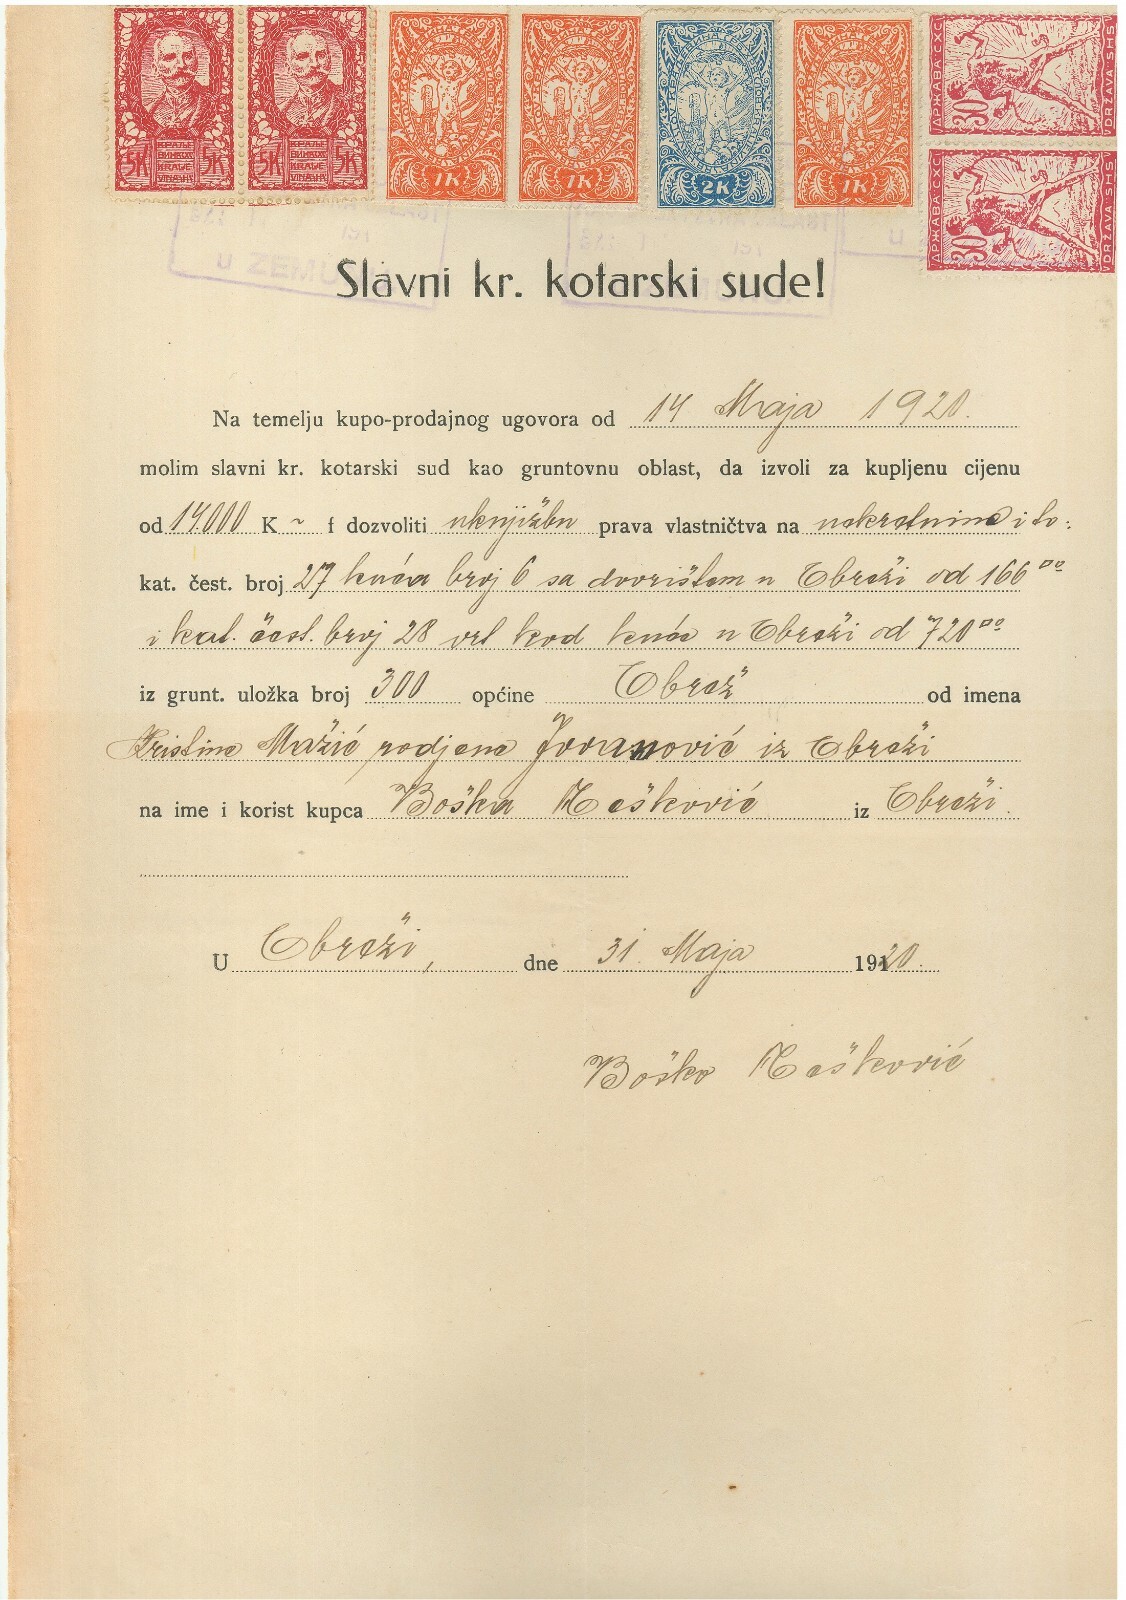 5K КРАЉЕ ВИНАОИ KRALJE VINAOHI 5K
5K 5K
1K
1K
2K
1K
30 ДРЖАВА СХС DRŽAVA SHS
30 ДРЖАВА СХС DRŽAVA SHS
U ZEMU
Slavni kr. kotarski sude!
Na temelju kupo-prodajnog ugovora od 14 Maja 1920.
molim slavni kr. kotarski sud kao gruntovnu oblast, da izvoli za kupljenu cijenu
od 14.000 K ~ f dozvoliti uknjižbu prava vlastničtva na nekretnine i to:
kat. čest. broj 27 kuća broj 6 sa dvorištem u Obreži od 166
i kat. čest. broj 28 vrt kod kuće u Obreži od 720
iz grunt. uložka broj 300 općine Obrež od imena
Kristine Mažić rodjene Jovanović iz Obreži
na ime i korist kupca Boška Tešković iz Obreži.
U Obreži, dne 31 Maja 1920.
Boško Tešković